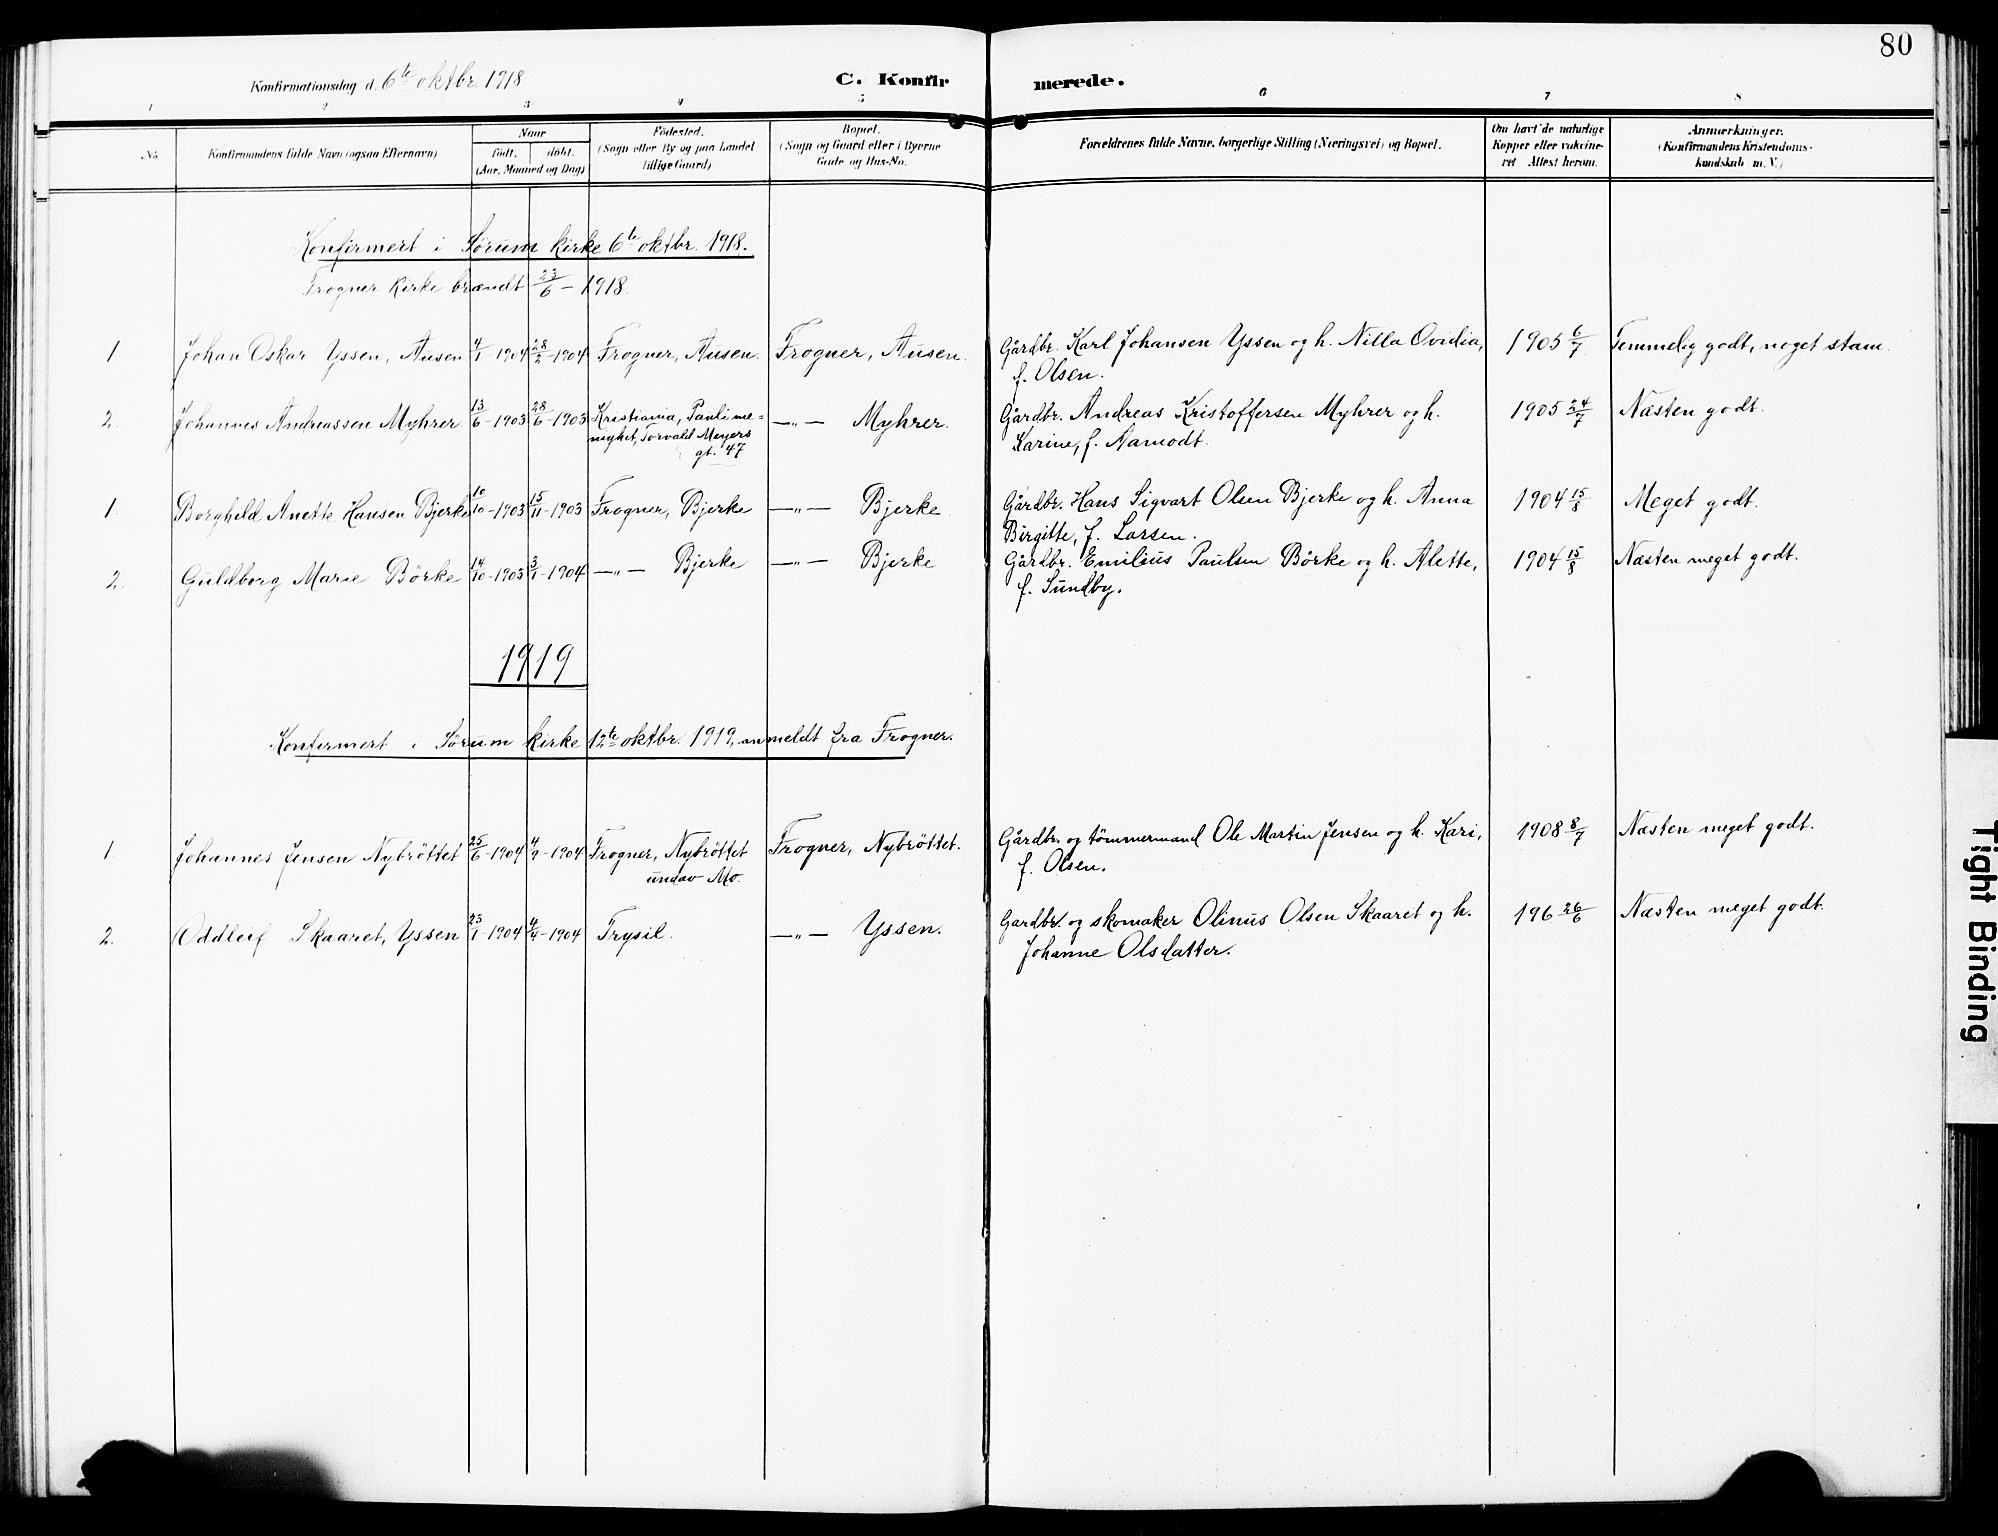 80
Konfirmationsdag d. 6te oktbr. 1918
C. Konfir merede.
1 2 3 4 5 6 7 8
No. Konfirmandens fulde Navn (ogsaa Efternavn) Naar født. døbt. (Aar, Maaned og Dag) Fødested. (Sogn eller By og paa Landet tillige Gaard) Bopæl. (Sogn og Gaard eller i Byerne Gade og Hus-No. Forældrenes fulde Navne, borgerlige Stilling (Næringsvei) og Bopæl. Om havt de naturlige Kopper eller vakcineret Attest herom. Anmærkninger. (Konfirmandens Kristendomskundskab m. V.)
Konfirmert i Sørum kirke 6te oktbr. 1918.
Frogner kirke brændt 23/6 - 1918.
1 Johan Oskar Yssen, Ausen 4/1 - 1904 28/2 - 1904 Frogner, Ausen. Frogner, Ausen. Gårdbr. Karl Johansen Yssen og h. Nilla Ovidia, 1905 6/7 Temmelig godt, noget stam.
f. Olsen.
2. Johannes Andreassen Myhrer 13/6 - 1903 28/6 - 1903 Kristiania, Pauli me- —„— Myhrer. Gårdbr. Andreas Kristoffersen Myhrer og h. 1905 24/7 Næsten godt.
nighet, Torvald Meyers Karine, f. Aamodt.
gt. 47
1. Borghild Anette Hansen Bjerke 10/10 - 1903 15/11 - 1903 Frogner, Bjerke —„— Bjerke Gårdbr. Hans Sigvart Olsen Bjerke og h. Anna 1904 15/8 Meget godt.
Birgitte, f. Larsen.
2. Guldborg Marie Börke 14/10 - 1903 3/1 - 1904 —„— Bjerke —„— Bjerke Gårdbr. Emilius Paulsen Börke og h. Alette, 1904 15/8 Næsten meget godt.
f. Sundby.
1919
Konfirmert i Sørum kirke 12te oktbr. 1919, anmeldt fra Frogner.
1. Johannes Jensen Nybröttet 25/6 - 1904 4/9 - 1904 Frogner, Nybröttet Frogner, Nybröttet. Gårdbr. og tømmermand Ole Martin Jensen og h. Kari, 1908 8/7 Næsten meget godt.
undav Mo. f. Olsen.
2. Oddleif Skaaret, Yssen 23/1 - 1904 4/4 - 1904 Trysil. —„— Yssen. Gardbr. og skomaker Olinus Olsen Skaaret og h. 196 26/6 Næsten meget godt.
Johanne Olsdatter.
Tight Binding